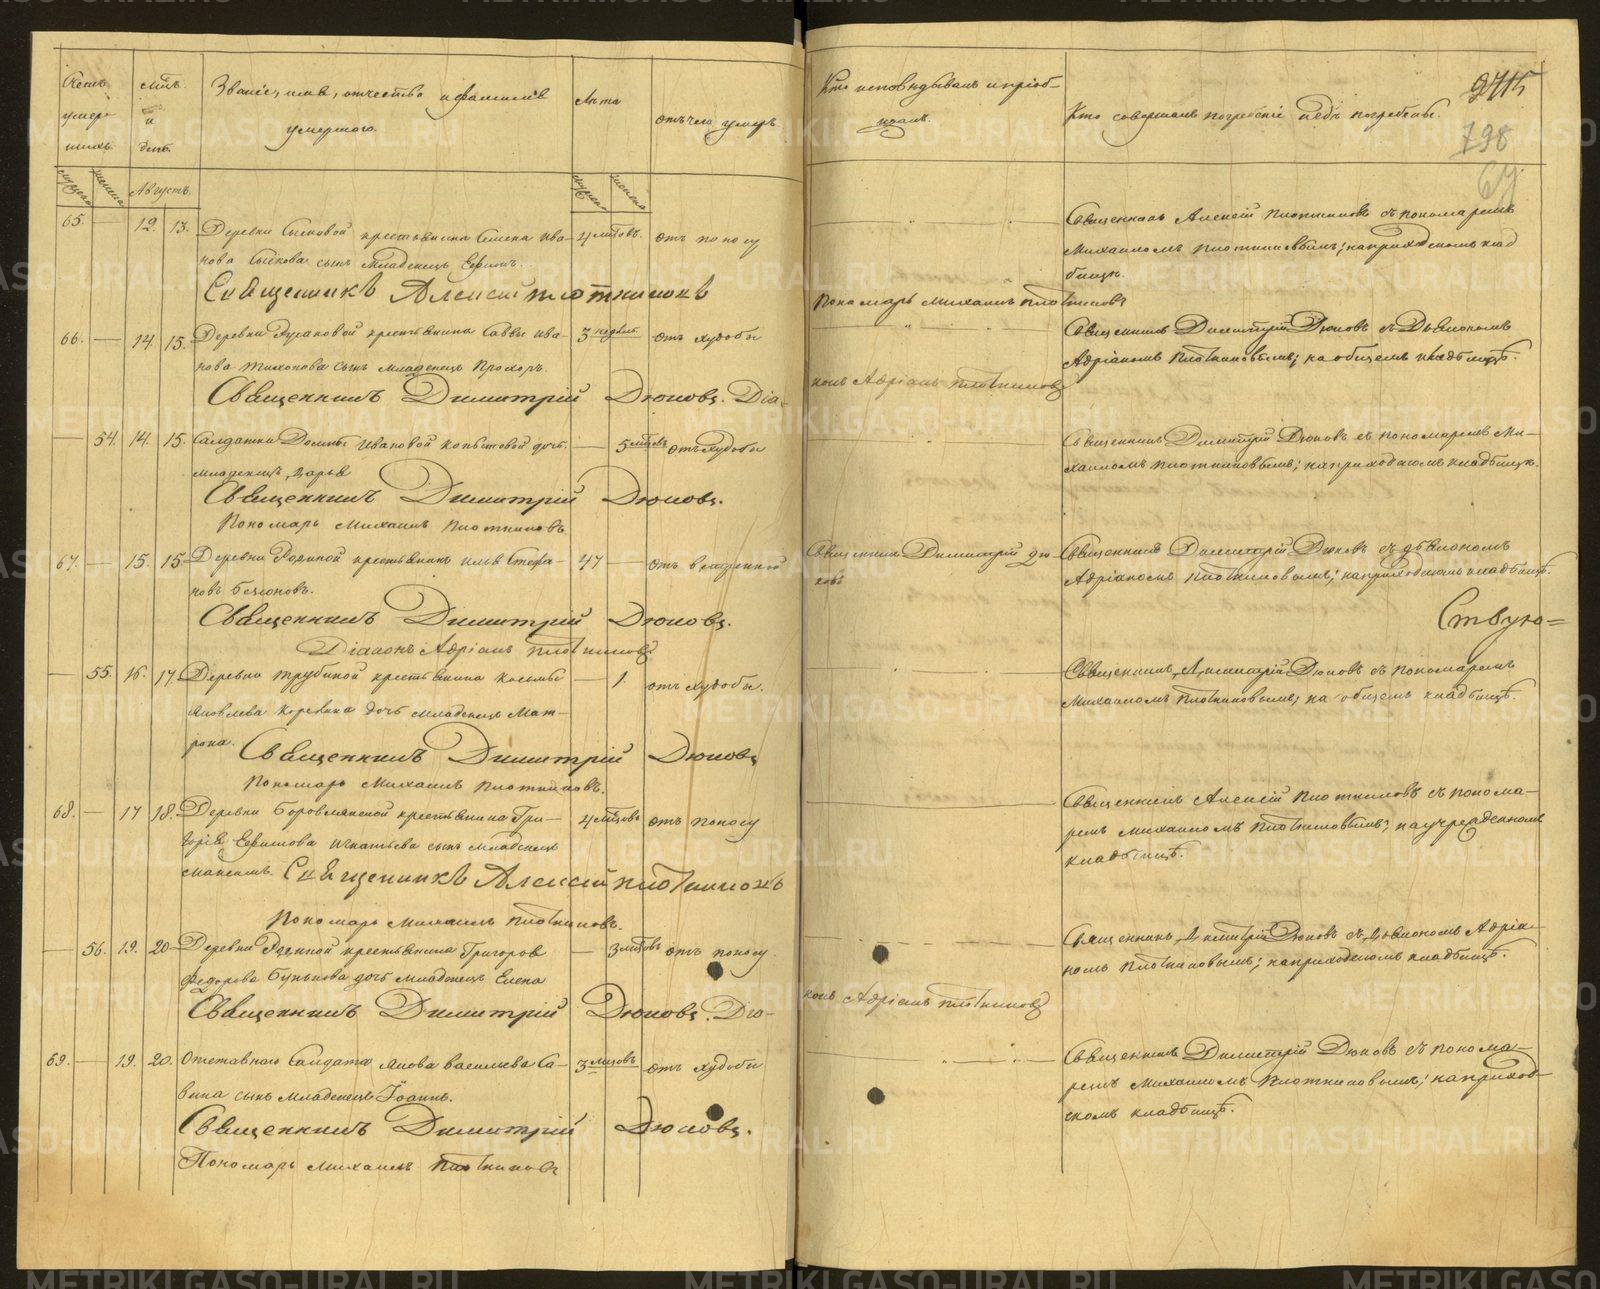 Счетъ умер-шихъ.
мѣс. и день.
Званіе, имя, отчество и фамилія умершаго.
Лѣта
отъ чего умеръ
мужеска
женска
Августъ.
мужеска
женска
65. — 12. 13. Деревни Сысковой крестьянина Семена Ива- 4 мѣсов. отъ поносу
нова Сыскова сынъ младенецъ Ефимъ.
Священникъ Алексій Плотниковъ
66. — 14. 15. Деревни Русаковой крестьянина Саввы Ива- 3 недѣль отъ худобы
нова Тихонова сынъ младенецъ Прохоръ.
Священникъ Димитрій Дюковъ. Діа-
— 54. 14. 15. Салдатки Ивановой дочь — 5 мѣсовъ отъ худобы
младенецъ Дарья
Священникъ Димитрій Дюковъ.
Пономарь Михаилъ Плотниковъ.
67. — 15. 15. Деревни крестьянинъ Илья Степа- 47 — отъ
новъ
Священникъ Димитрій Дюковъ.
Діаконъ Адріанъ Плотниковъ
— 55. 16. 17. Деревни Трубиной крестьянина Косьмы — 1. отъ худобы.
Яковлева дочь младенецъ Мат-
рона. Священникъ Димитрій Дюковъ
Пономарь Михаилъ Плотниковъ.
68. — 17 18. Деревни Боровлянской крестьянина Гри- 4 мѣсцовъ отъ поносу
горія Ефимова Игнатьева сынъ младенецъ
Максимъ. Священникъ Алексій Плотниковъ
Пономарь Михаилъ Плотниковъ.
— 56. 19. 20 Деревни крестьянина Григорья — 3 мѣсовъ отъ поносу.
Федорова Бунькова дочь младенецъ Елена
Священникъ Димитрій Дюковъ. Діа-
69. — 19. 20. Отставнаго Салдата Якова Васильева Са- 3 мѣсовъ отъ худобы
вина сынъ младенецъ Іоаннъ.
Священникъ Димитрій Дюковъ.
Пономарь Михаилъ Плотниковъ
Кто исповѣдывалъ и пріоб-
щалъ.
Кто совершалъ погребеніе и гдѣ погребены.
798
Священникъ Алексій Плотниковъ съ пономаремъ
Михаиломъ Плотниковымъ; на приходскомъ клад-
бищѣ.
Пономарь Михаилъ Плотниковъ
Священникъ Димитрій Дюковъ съ Дьякономъ
Адріаномъ Плотниковымъ; на общемъ кладбищѣ.
конъ Адріанъ Плотниковъ
Священникъ Димитрій Дюковъ съ пономаремъ Ми-
хаиломъ Плотниковымъ; на приходскомъ кладбищѣ.
Священникъ Димитрій Дю-
ковъ
Священникъ Димитрій Дюковъ съ дьякономъ
Адріаномъ Плотниковымъ; на приходскомъ кладбищѣ.
Священникъ Димитрій Дюковъ съ пономаремъ
Михаиломъ Плотниковымъ; на общемъ кладбищѣ.
Священникъ Алексій Плотниковъ съ понома-
ремъ Михаиломъ Плотниковымъ; на учрежденномъ
кладбищѣ.
Священникъ Димитрій Дюковъ съ Дьякономъ Адріа-
номъ Плотниковымъ; на приходскомъ кладбищѣ.
конъ Адріанъ Плотниковъ
Священникъ Димитрій Дюковъ съ понома-
ремъ Михаиломъ Плотниковымъ; на приход-
скомъ кладбищѣ.
METRIKI.GASO-URAL.RU